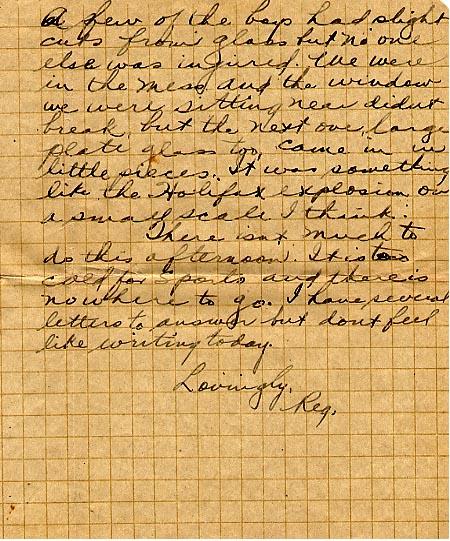 A few of the boys had slight
cuts from glass but no one
else was injured. We were
in the mess and the window
we were sitting near didnt
break, but the next one, large
plate glass too, came in in
little pieces. It was something
like the Halifax explosion on
a small scale I think.
There isnt much to
do this afternoon. It is too
cold for sports and there is
nowhere to go. I have several
letters to answer but dont feel
like writing today.
Lovingly,
Reg.